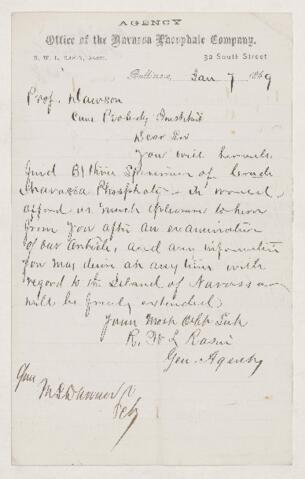 AGENCY
Office of the Navassa Phosphate Company.
32 South Street
Jan 7 1869
Prof. Dawson
Care Peabody Institute
Dear Sir
You will herewith
find B/L for Specimen of Crude
Navassa Phosphate - It would
afford us much pleasure to hear
from you after an examination
of our article, and any information
you may desire at any time with
regard to the Island of Navassa
will be freely extended.
Yours Most Obt Svt
R. W. L. Rasin
Gen. Agency